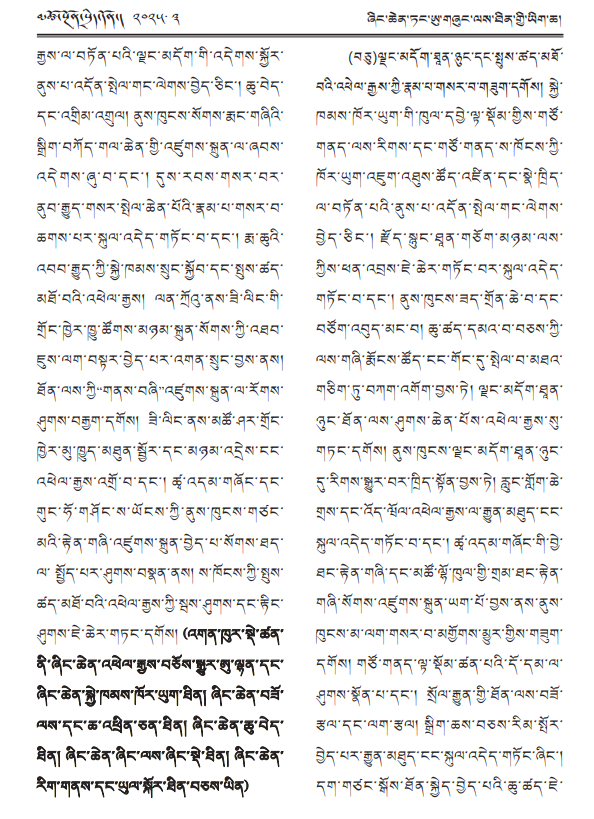 མཚོ་སྔོན་སྲིད་གཞུང་། ༢༠༢༥·༣
ཞིང་ཆེན་ཏང་ཨུ་གཞུང་ལས་ཐིན་གྱི་ཡིག་ཆ།
རྒྱས་ལ་བཏོན་པའི་ལྗང་མདོག་གི་འདེགས་སྐྱོར་
ནུས་པ་འདོན་སྤེལ་གང་ལེགས་བྱེད་ཅིང་། ཆུ་བེད་
དང་འགྲིམ་འགྲུལ། ནུས་ཁུངས་སོགས་རྨང་གཞིའི་
སྒྲིག་བཀོད་གལ་ཆེན་གྱི་འཛུགས་སྐྲུན་ལ་ཞབས་
འདེགས་ཞུ་བ་དང་། དུས་རབས་གསར་བར་
ནུབ་རྒྱུད་གསར་སྤེལ་ཆེན་པོའི་རྣམ་པ་གསར་བ་
ཆགས་པར་སྐུལ་འདེད་གཏོང་བ་དང་། རྨ་ཆུའི་
འབབ་རྒྱུད་ཀྱི་སྐྱེ་ཁམས་སྲུང་སྐྱོབ་དང་སྤུས་ཚད་
མཐོ་བའི་འཕེལ་རྒྱས། ལན་ཀྲོའུ་ནས་ཟི་ལིང་གི་
གྲོང་ཁྱེར་ཁྱུ་ཚོགས་མཉམ་སྐྲུན་སོགས་ཀྱི་འཐབ་
ཇུས་ལག་བསྟར་བྱེད་པར་འགན་སྲུང་བྱས་ནས།
ཐོན་ལས་ཀྱི“གནས་བཞི”འཛུགས་སྐྲུན་ལ་རོགས་
ཤུགས་བརྒྱག་དགོས། ཟི་ལིང་ནས་མཚོ་ཤར་གྲོང་
ཁྱེར་མུ་ཁྱུད་མཐུན་སྦྱོར་དང་མཉམ་འདྲེས་ངང་
འཕེལ་རྒྱས་འགྲོ་བ་དང་། ཚྭ་འདམ་གཞོང་དང་
གུང་ཧོ་གཤོང་ས་ཡོངས་ཀྱི་ནུས་ཁུངས་གཙང་
མའི་རྟེན་གཞི་འཛུགས་སྐྲུན་བྱེད་པ་སོགས་ཐད་
ལ་ སྤྱོད་པར་ཤུགས་བསྣན་ནས། ས་ཁོངས་ཀྱི་སྤུས་
ཚད་མཐོ་བའི་འཕེལ་རྒྱས་ཀྱི་སྦས་ཤུགས་དང་རྟིང་
ཤུགས་ཇེ་ཆེར་གཏང་དགོས། (འགན་ཁུར་སྡེ་ཚན་
ནི་ཞིང་ཆེན་འཕེལ་རྒྱས་བཅོས་སྒྱུར་ཨུ་ལྷན་དང་
ཞིང་ཆེན་སྐྱེ་ཁམས་ཁོར་ཡུག་ཐིན། ཞིང་ཆེན་བཟོ་
ལས་དང་ཆ་འཕྲིན་ཅན་ཐིན། ཞིང་ཆེན་ཆུ་བེད་
ཐིན། ཞིང་ཆེན་ཞིང་ལས་ཞིང་སྡེ་ཐིན། ཞིང་ཆེན་
རིག་གནས་དང་ཡུལ་སྐོར་ཐིན་བཅས་ཡིན)
(བཅུ)ལྗང་མདོག་ཐྲན་ཉུང་དང་སྤུས་ཚད་མཐོ་
བའི་འཕེལ་རྒྱས་ཀྱི་རྣམ་པ་གསར་བ་གཟུག་དགོས། སྐྱེ་
ཁམས་ཁོར་ཡུག་གི་ཁུལ་དབྱེ་ལྟ་སྡོམ་གྱིས་གཙོ་
གནད་ལས་རིགས་དང་གཙོ་གནད་ས་ཁོངས་ཀྱི་
ཁོར་ཡུག་འཇུག་འཐུས་ཚོད་འཛིན་དང་སྣེ་ཁྲིད་
ལ་བཏོན་པའི་ནུས་པ་འདོན་སྤེལ་གང་ལེགས་
བྱེད་ཅིང་། རྫོད་སྐྱུང་ཐྲན་གཅོག་མཉམ་ལས་
ཀྱིས་ཕན་འབྲས་ཇེ་ཆེར་གཏོང་བར་སྐུལ་འདེད་
གཏོང་བ་དང་། ནུས་ཁུངས་ཟད་གྲོན་ཆེ་བ་དང་
བཙོག་འབུད་མང་བ། ཆུ་ཚད་དམའ་བ་བཅས་ཀྱི་
ལས་གཞི་རྨོངས་ཚོད་ངང་གོང་དུ་སྤེལ་བ་མཐའ་
གཅིག་ཏུ་བཀག་འགོག་བྱས་ཏེ། ལྗང་མདོག་ཐྲན་
ཉུང་ཐོན་ལས་ཤུགས་ཆེན་པོས་འཕེལ་རྒྱས་སུ་
གཏང་དགོས། ནུས་ཁུངས་ལྗང་མདོག་ཐྲན་ཉུང་
དུ་རིགས་སྒྱུར་བར་ཁྲིད་སྟོན་བྱས་ཏེ། རླུང་གློག་ཆེ་
གྲས་དང་འོད་ཝོལ་འཕེལ་རྒྱས་ལ་རྒྱུན་མཐུད་ངང་
སྐུལ་འདེད་གཏོང་བ་དང་། ཚྭ་འདམ་གཞོང་གི་བྱེ་
ཐང་རྟེན་གཞི་དང་མཚོ་ལྷོ་ཁུལ་གྱི་གྲམ་ཐང་རྟེན་
གཞི་སོགས་འཛུགས་སྐྲུན་ཡག་པོ་བྱས་ནས་ནུས་
ཁུངས་མ་ལག་གསར་བ་མགྱོགས་མྱུར་གྱིས་གཟུག་
དགོས། གཙོ་གནད་ལྟ་སྡོམ་ཚན་པའི་དོ་དམ་ལ་
ཤུགས་སྣོན་པ་དང་། སྲོལ་རྒྱུན་གྱི་ཐོན་ལས་བཟོ་
རྩལ་དང་ལག་རྩལ། སྒྲིག་ཆས་བཅས་རིམ་སྤོར་
བྱེད་པར་རྒྱུན་མཐུད་ངང་སྐུལ་འདེད་གཏོང་ཞིང་།
དག་གཙང་སྒོས་ཐོན་སྐྱེད་བྱེད་པའི་ཆུ་ཚད་ཇེ་